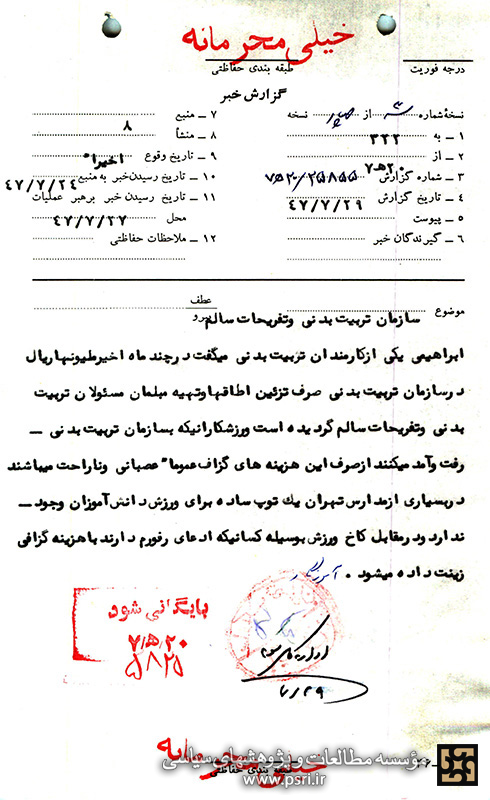 خیلی محرمانه
طبقه بندی حفاظتی
درجه فوریت
گزارش خبر
نسخهٔ شماره ۳ از نسخه
۱ ــ به ۳۲۲
۲ ــ از ۲۰ﻫ۷
۳ ــ شماره گزارش ۲۵۸۵۵/۲۰ﻫ۷
۴ ــ تاریخ گزارش ۴۷/۷/۲۹
۵ ــ پیوست
۶ ــ گیرندگان خبر
۷ ــ منبع
۸ ــ منشأ ۸
۹ ــ تاریخ وقوع اخیرا"
۱۰ ــ تاریخ رسیدن خبر به منبع ۴۷/۷/۲۴
۱۱ ــ تاریخ رسیدن خبر برهبر عملیات
محل ۴۷/۷/۲۷
۱۲ ــ ملاحظات حفاظتی
موضوع
عطف
پیرو
سازمان تربیت بدنی وتفریحات سالم
ابراهیمی یکی ازکارمندان تربیت بدنی میگفت درچند ماه اخیرملیونهاریال
درسازمان تربیت بدنی صرف تزئین اطاقهاوتهیه مبلمان مسئولان تربیت
بدنی وتفریحات سالم گردیده است ورزشکارانیکه بسازمان تربیت بدنی ــ
رفت وآمد میکنند ازصرف این هزینه های گزاف عموما" عصبانی وناراحت میباشند
دربسیاری ازمدارس تهران یك توپ ساده برای ورزش دانش آموزان وجود ــ
ندارد ودرمقابل کاخ ورزش بوسیله کسانیکه ادعای رفورم دارند با هزینه گزافی
زینت داده میشود .
بایگانی شود
۷.ﻫ.۲۰
۵۸۲۵
۷/۲۹
خیلی محرمانه
طبقه بندی حفاظتی
مؤسسه مطالعات و پژوهشهای سیاسی
www.psri.ir